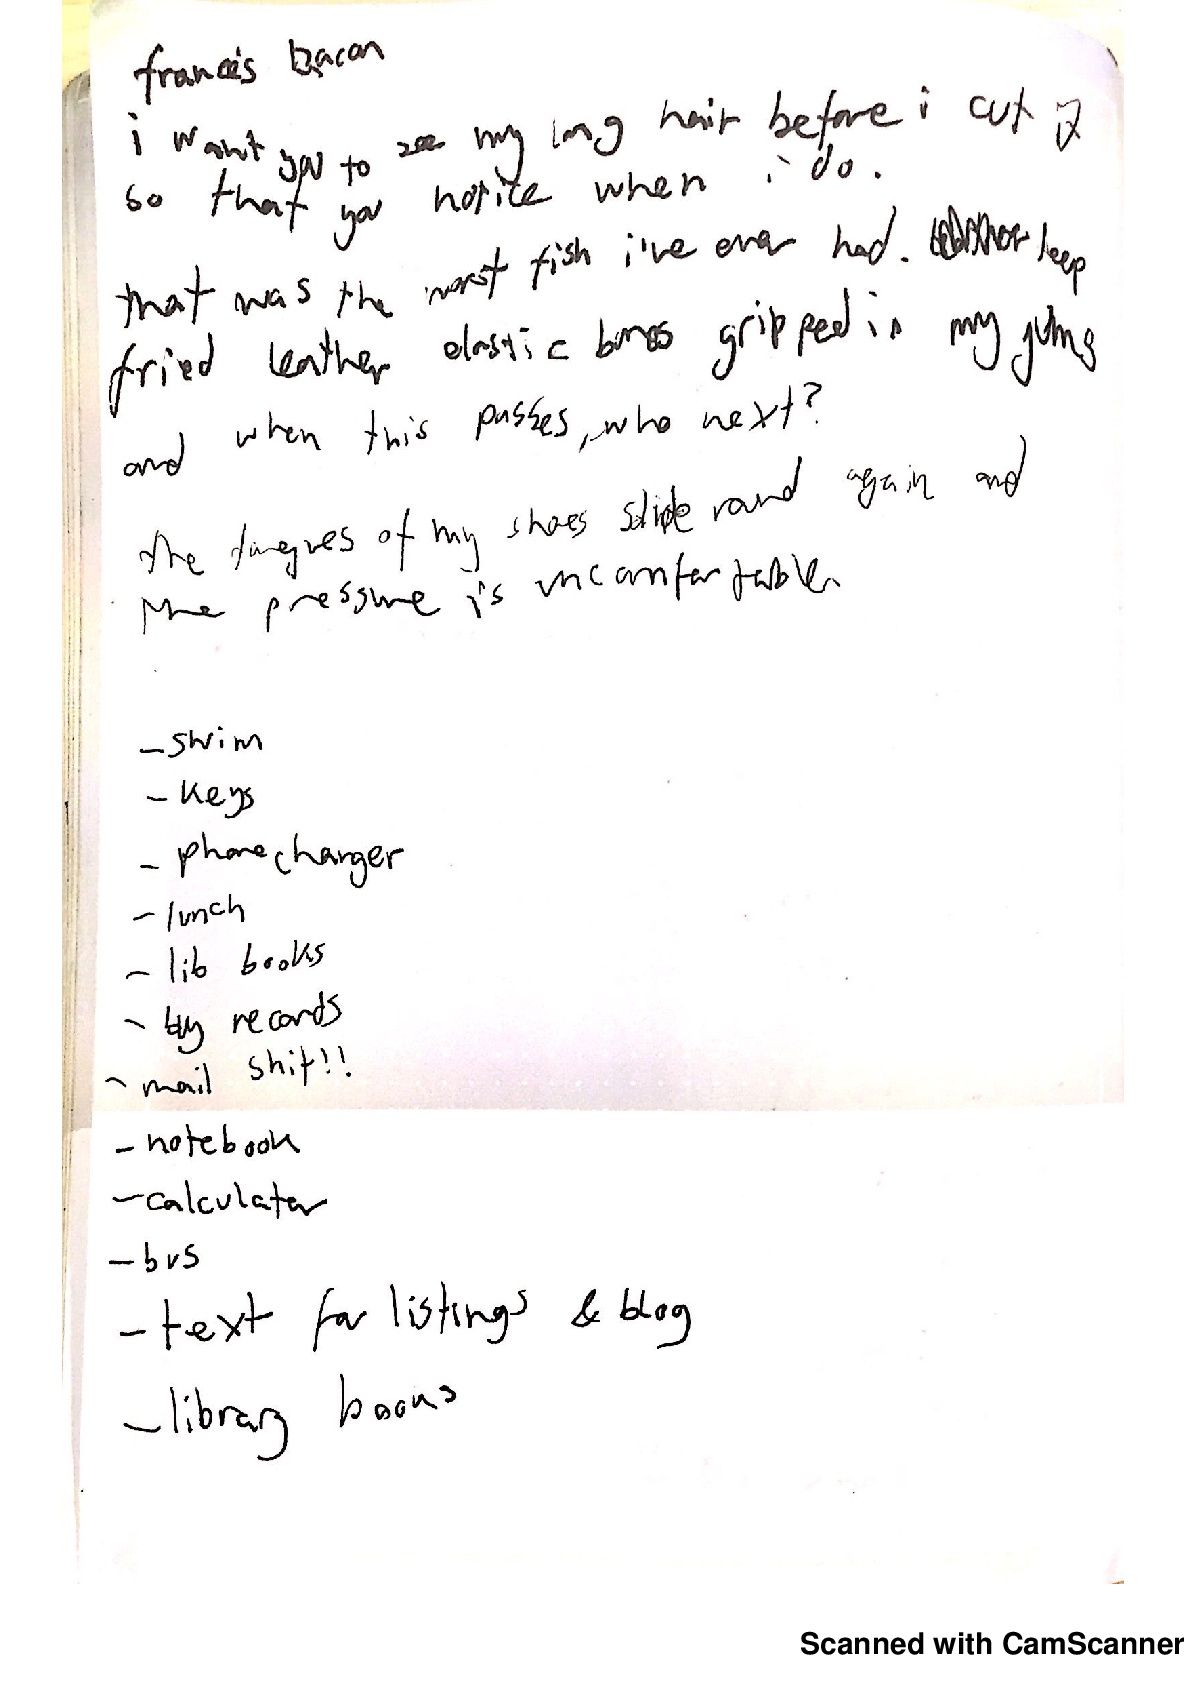 francis bacon
i want you to see my long hair before i cut it
so that you notice when i do.
that was the worst fish i've ever had. deep
fried leather elastic bones gripped in my gums
and when this passes, who next?
the tongues of my shoes slide round again and
the pressure is uncomfortable.
- swim
- keys
- phone charger
- lunch
- lib books
- buy records
- mail shit!!
- notebook
- calculator
- bus
- text for listings & blog
- library books
Scanned with CamScanner